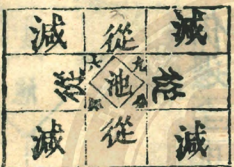 減 從 減
從 池 從
減 從 減